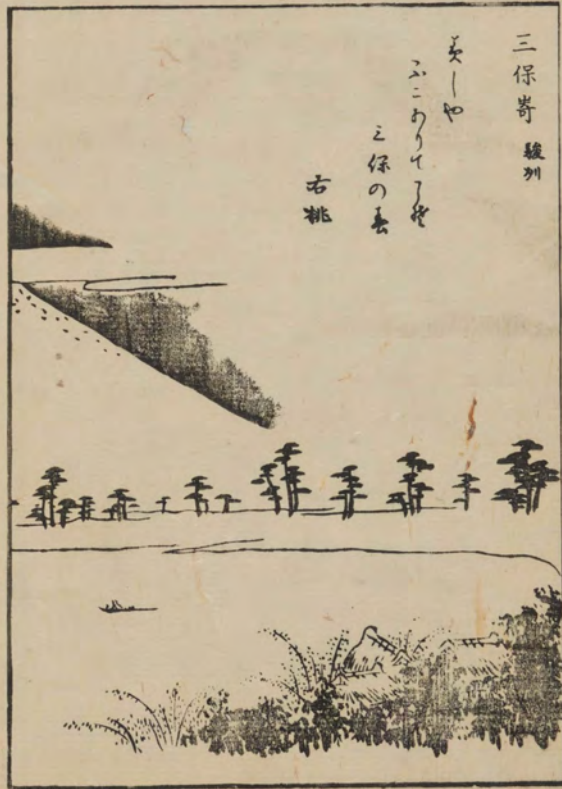 三保嵜 駿州
美しや
ふじありてこそ
三保の春
右桃